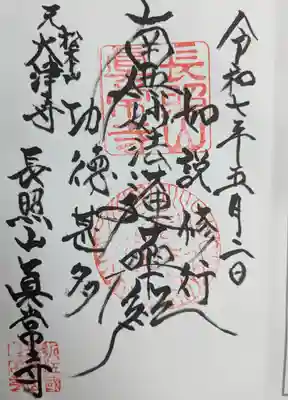 令和七年五月二日
如説修行
南無妙法蓮華経
功徳甚多
松本山
元大津寺
長照山真常寺
長照山
真常寺